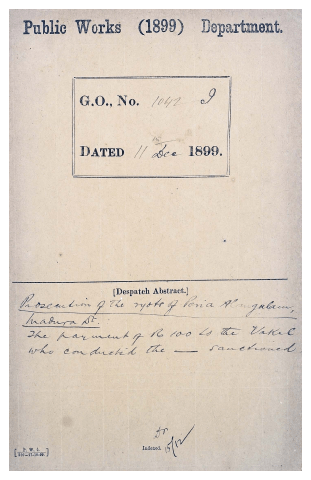 Public Works (1899) Department.
G.O., No. 1042 I
DATED 11th Dec 1899.
[Despatch Abstract.]
Prosecution of the ryots of Peria
Madura Dt.
The payment of Rs 100 to the Vakil
who conducted the — sanctioned
Indexed. 15/12